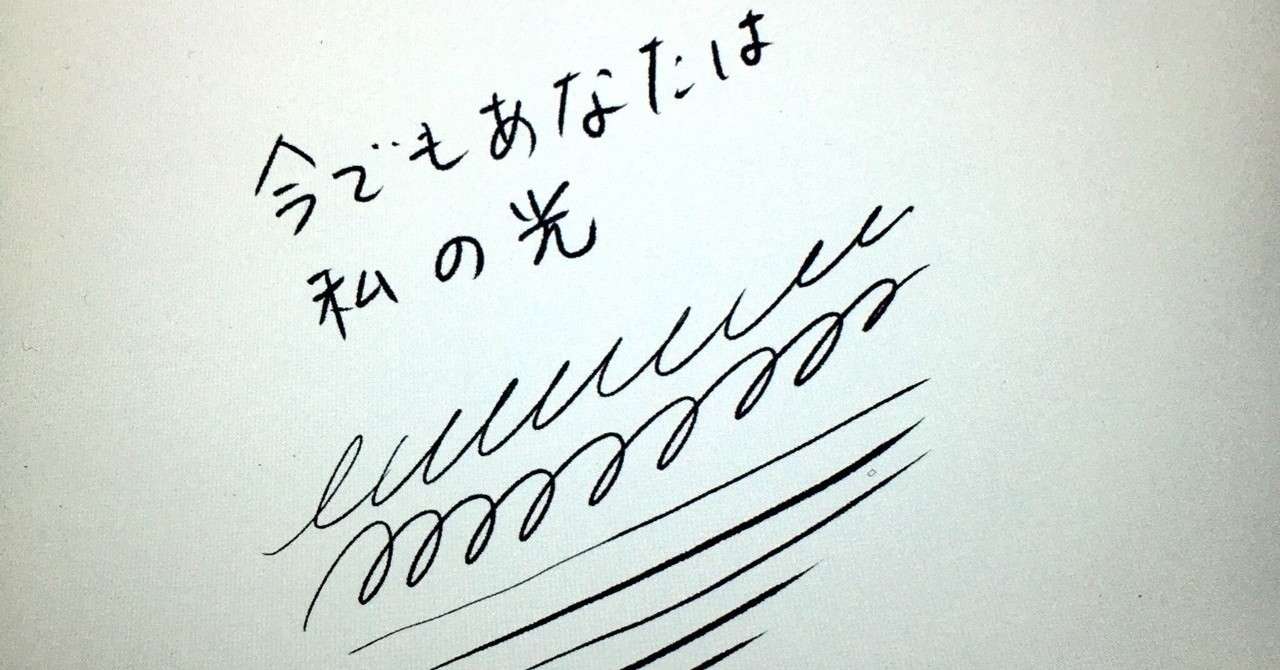 今でもあなたは
私の光